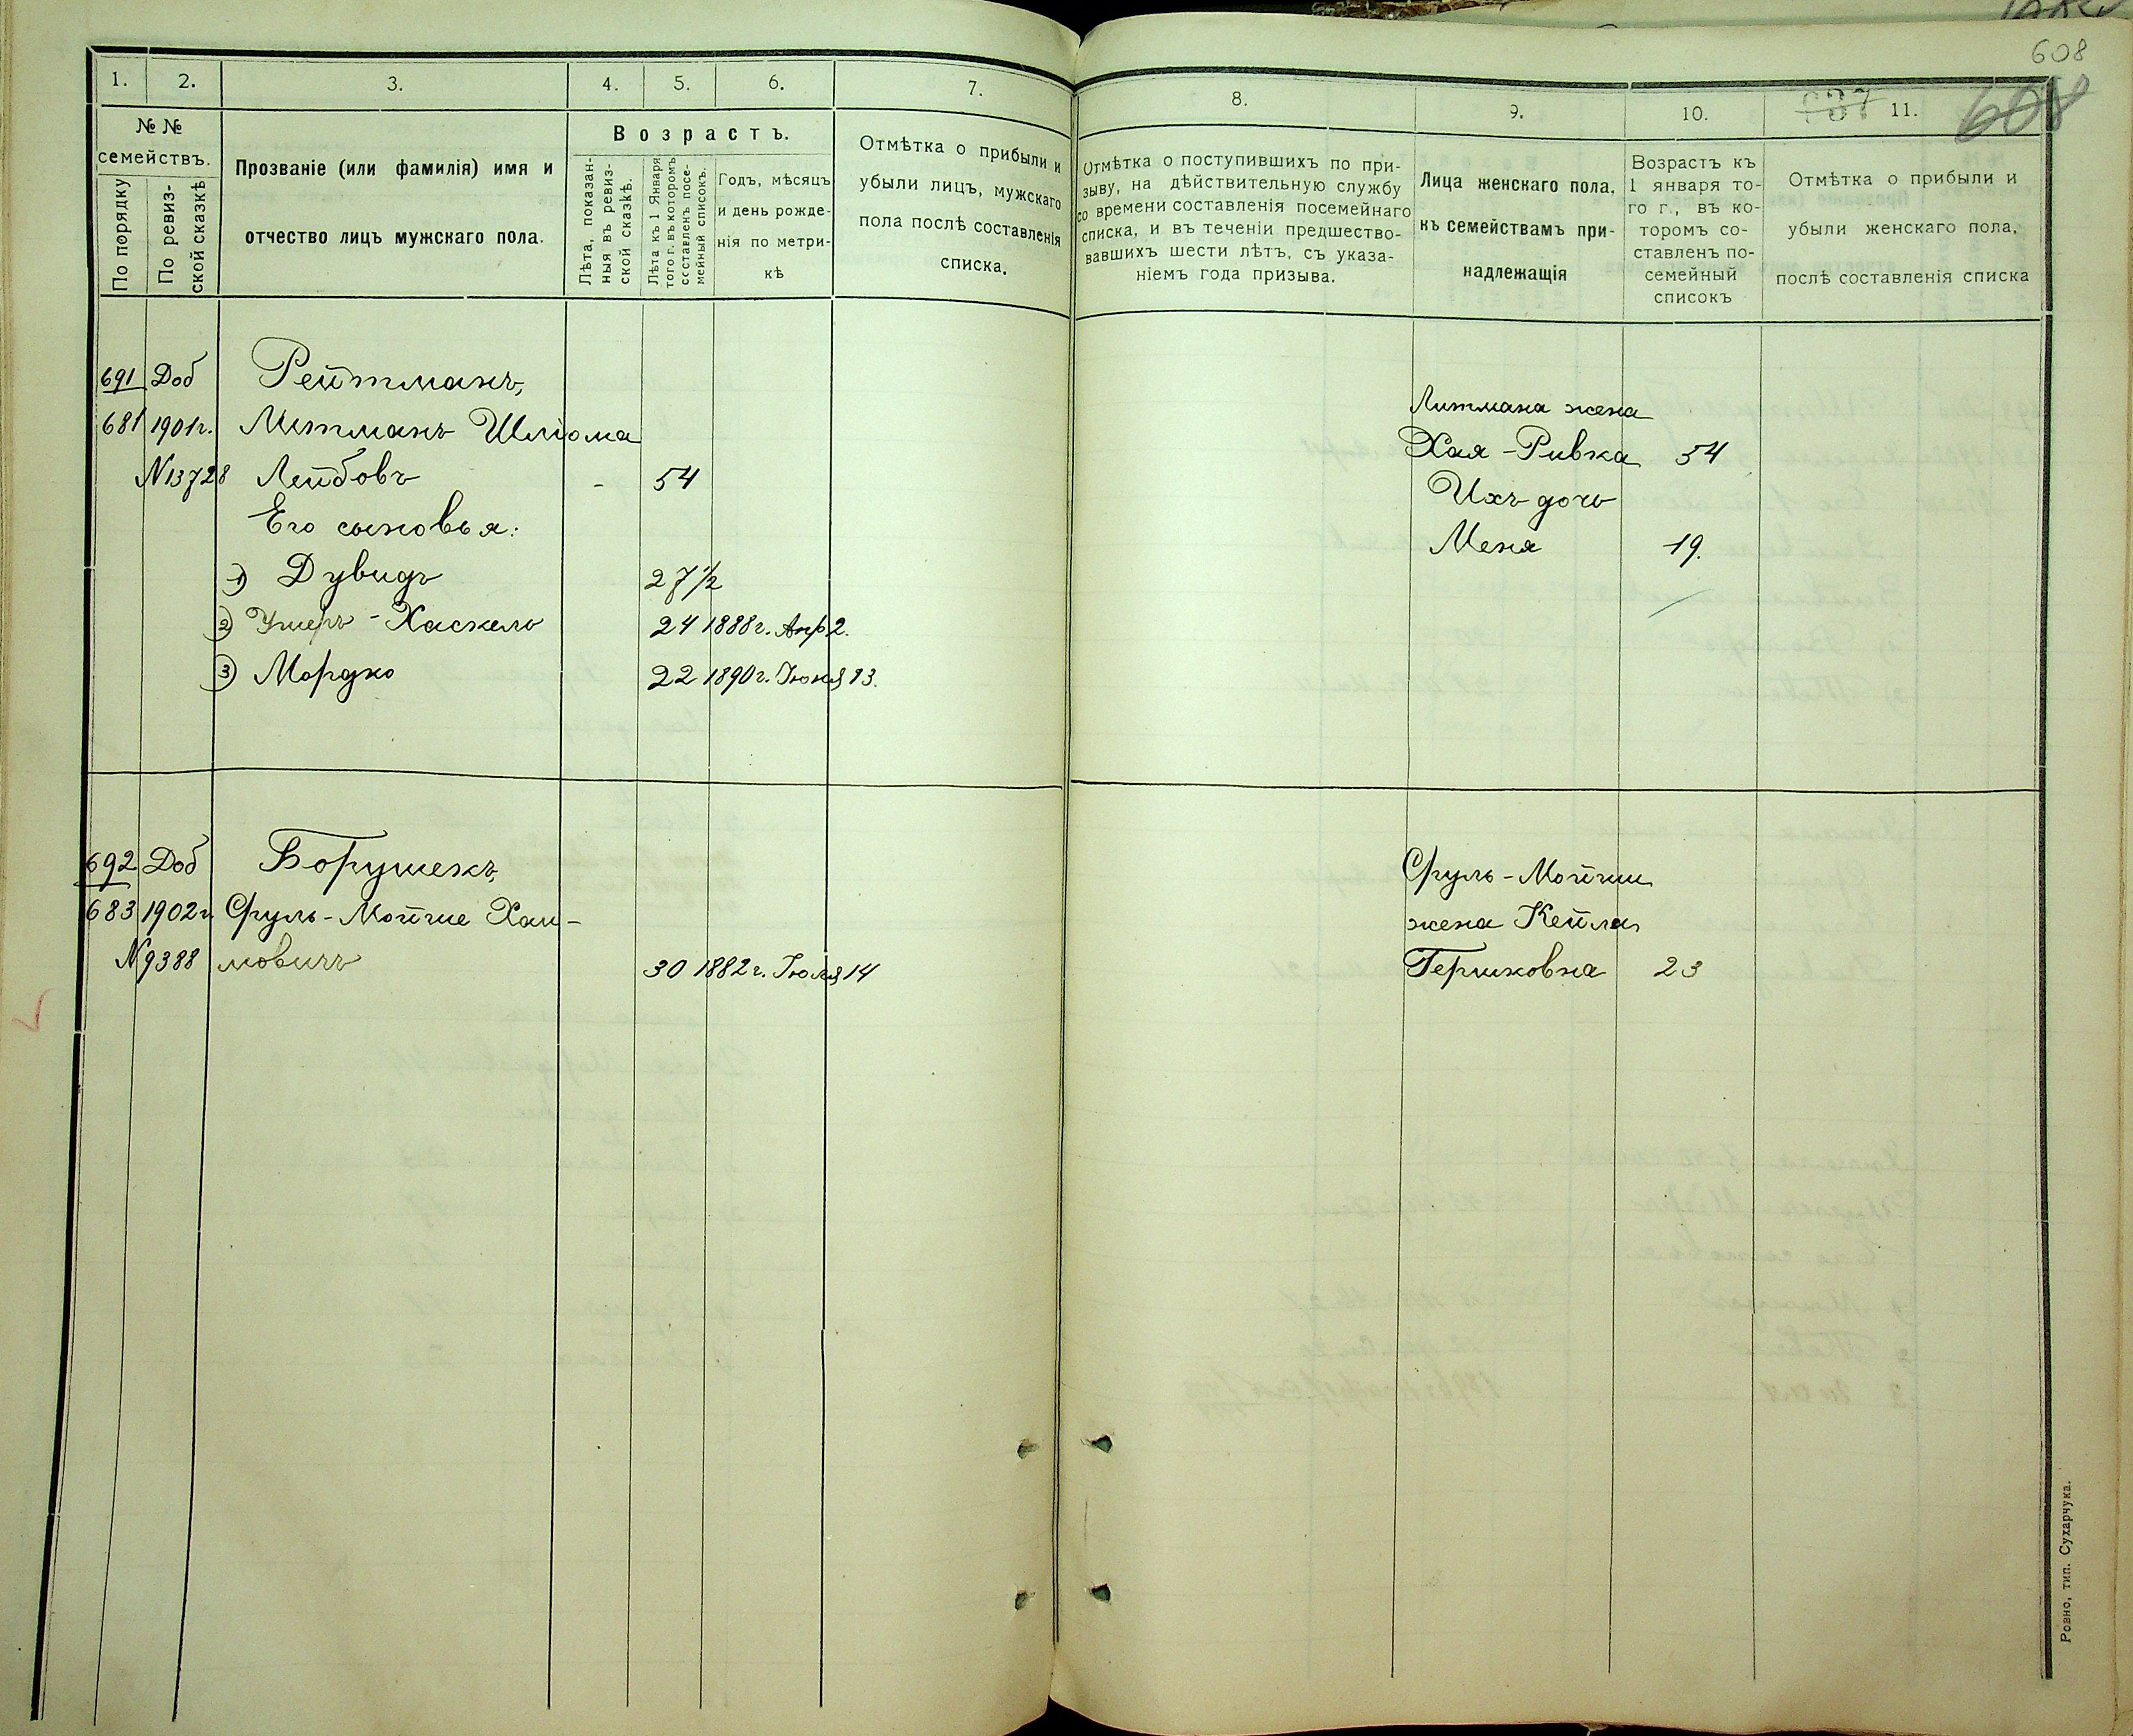 608
1. 2. 3. 4. 5. 6. 7.
№ №
семействъ.
По порядку
По ревиз-
ской сказкѣ
Прозваніе (или фамилія) имя и
отчество лицъ мужскаго пола.
Возрастъ.
Лѣта, показан-
ныя въ ревиз-
ской сказкѣ.
Лѣта къ 1 Января
того г. въ которомъ
составленъ посе-
мейный списокъ.
Годъ, мѣсяцъ
и день рожде-
нія по метри-
кѣ
Отмѣтка о прибыли и
убыли лицъ, мужскаго
пола послѣ составленія
списка.
691 Доб Рейтманъ,
681 1901г. Литманъ Шліома
N13728 Лейбовъ - 54
Его сыновья:
1) Дувидъ 27 1/2
2) Ушеръ-Хаскель 24 1888г. Апр 2.
3) Мордко 22 1890г. Іюня 13.
692 Доб Борушекъ,
683 1902г. Сруль-Мойше Хаи-
N9388 мовичъ 30 1882г. Іюля 14
8. 9. 10. 11.
637 608
Отмѣтка о поступившихъ по при-
зыву, на дѣйствительную службу
со времени составленія посемейнаго
списка, и въ теченіи предшество-
вавшихъ шести лѣтъ, съ указа-
ніемъ года призыва.
Лица женскаго пола,
къ семействамъ при-
надлежащія
Возрастъ къ
1 января то-
го г., въ ко-
торомъ со-
ставленъ по-
семейный
списокъ
Отмѣтка о прибыли и
убыли женскаго пола,
послѣ составленія списка
Литмана жена
Хая-Ривка 54
Ихъ дочь
Меня 19.
Сруль-Мойши
жена Кейла
Гершковна 23
Ровно, тип. Сухарчука.